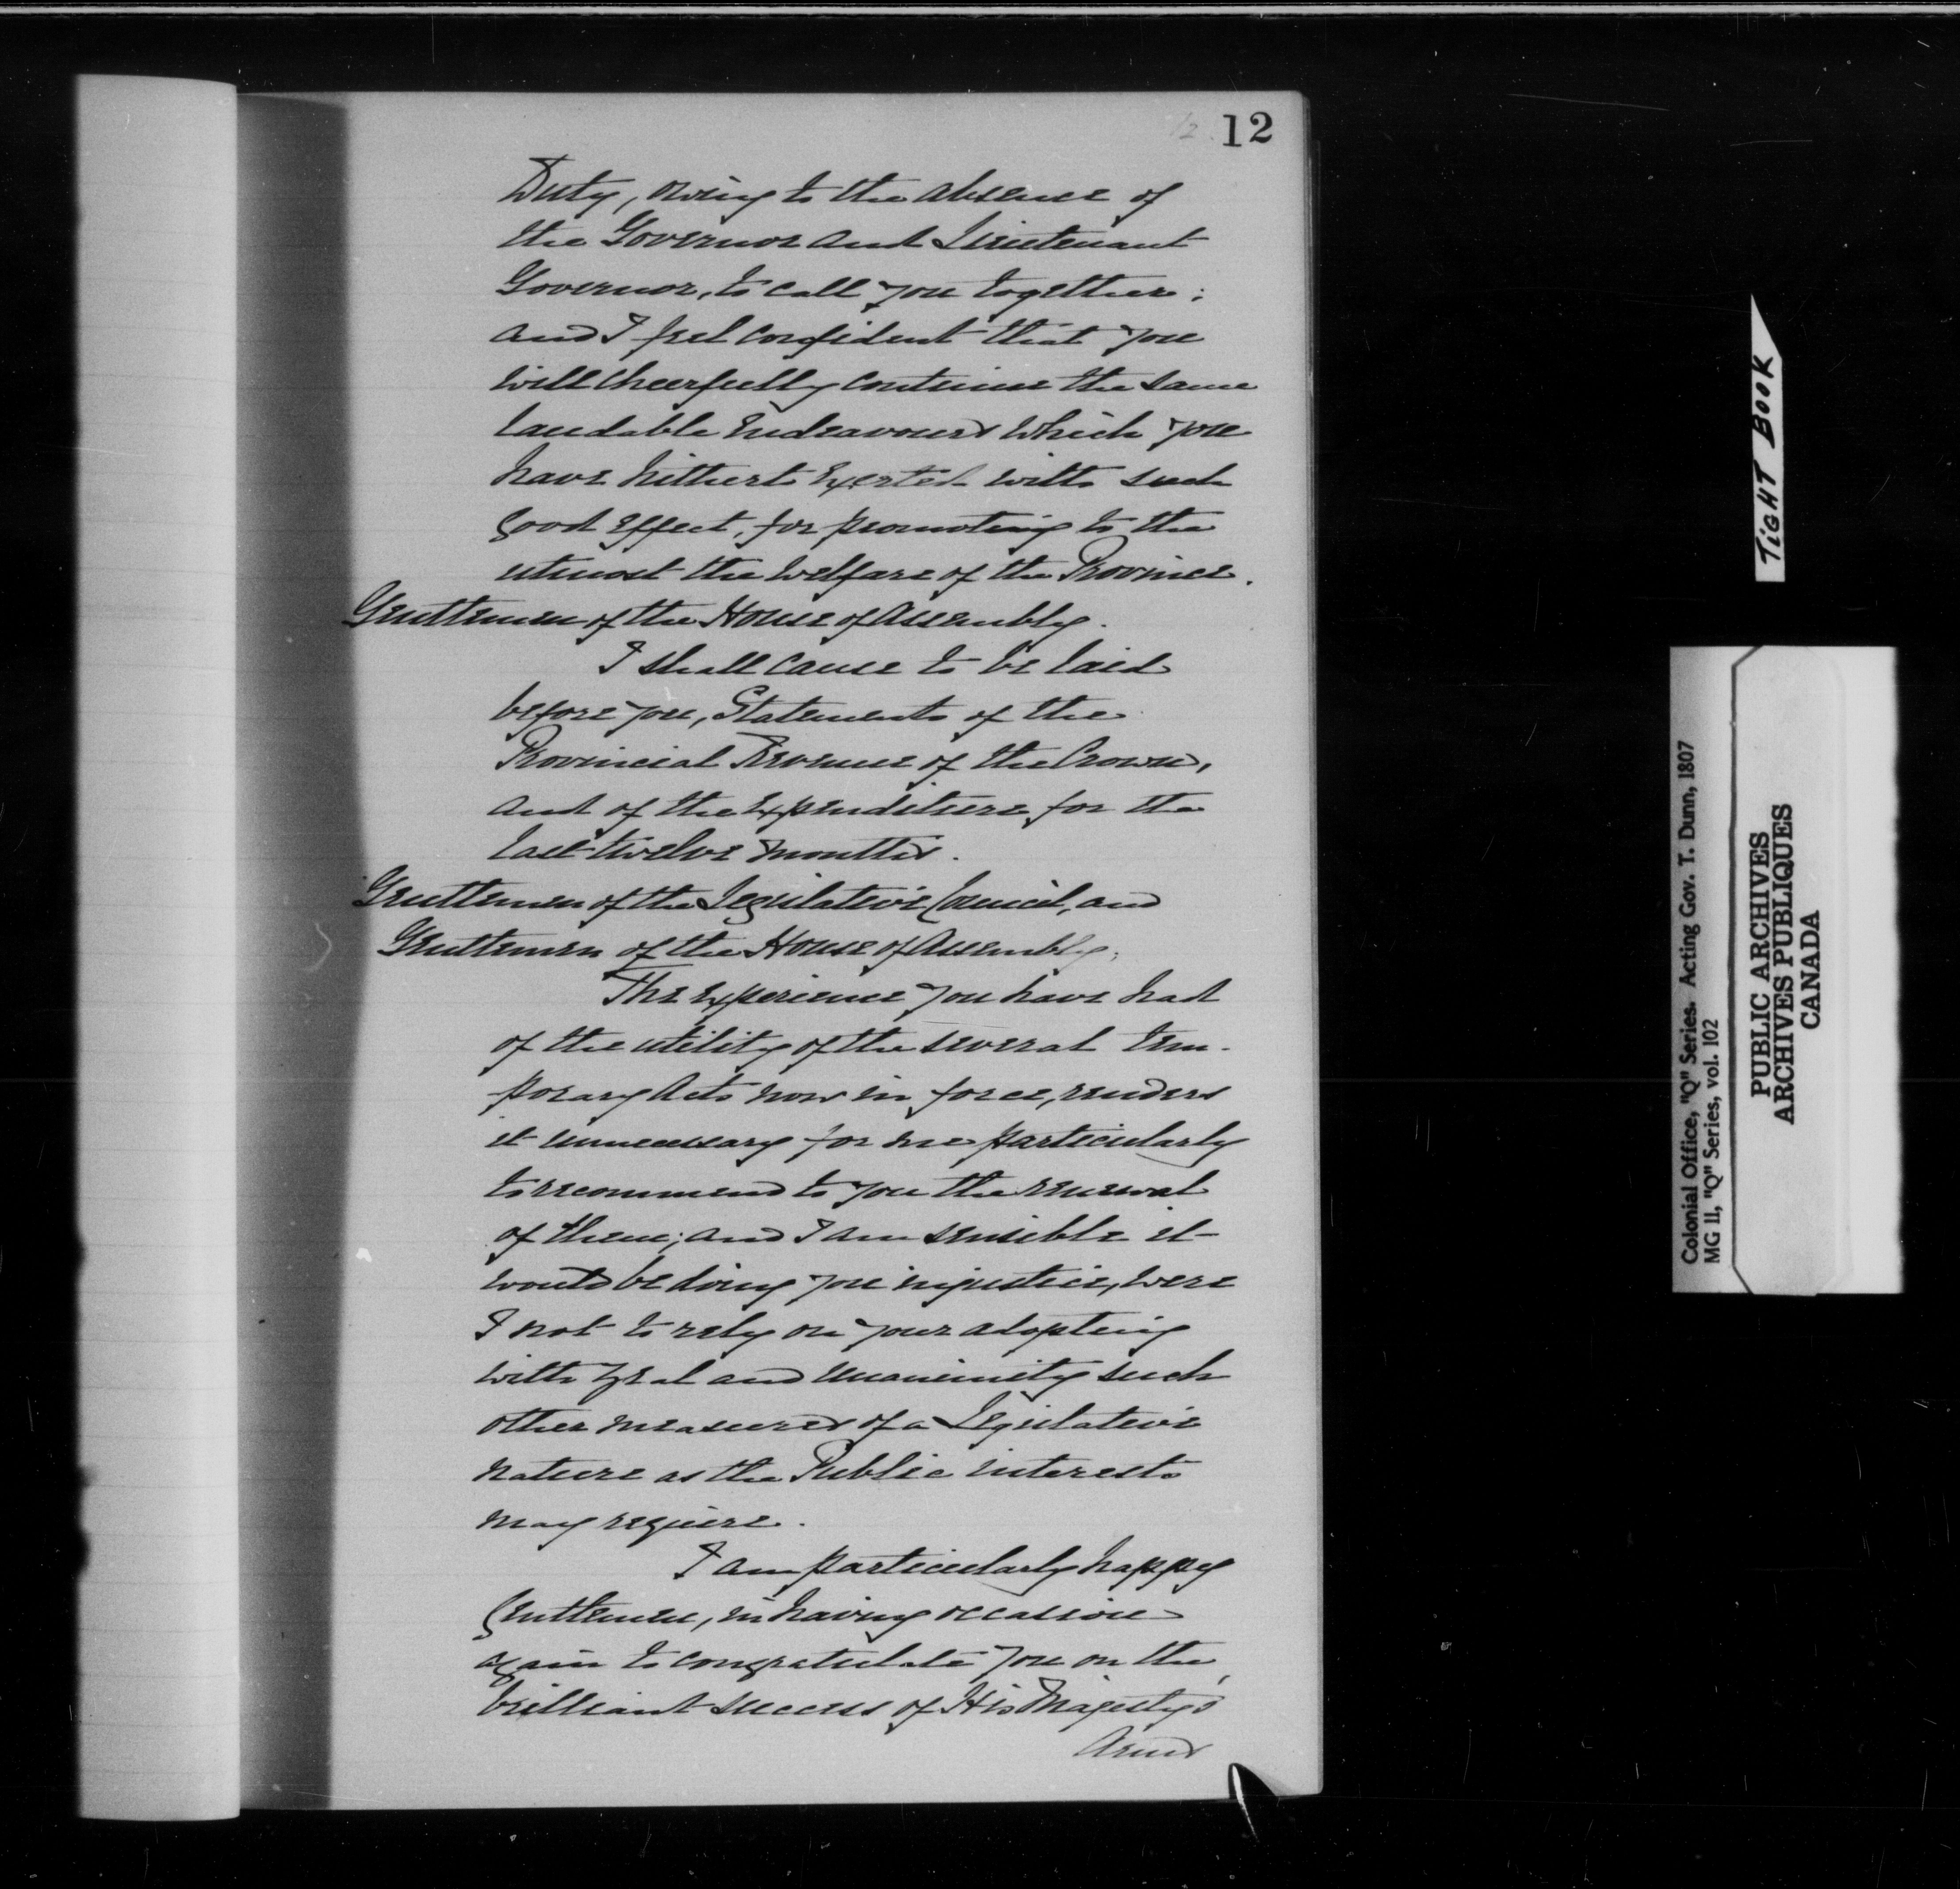 12 12
Duty, owing to the absence of
the Governor and Lieutenant
Governor, to call you together;
and I feel confident that you
will cheerfully continue the same
laudable endeavours which you
have hitherto exerted with such
good effect, for promoting to the
utmost the welfare of the Province.
Gentlemen of the House of Assembly.
I shall cause to be laid
before you, Statements of the
Provincial Revenue of the Crown,
and of the Expenditure for the
last twelve months.
Gentlemen of the Legislative Council, and
Gentlemen of the House of Assembly,
The experience you have had
of the utility of the several tem-
porary Acts now in force, renders
it unnecessary for me particularly
to recommend to you the renewal
of them; and I am sensible it
would be doing you injustice, were
I not to rely on your adopting
with zeal and unanimity such
other measures of a Legislative
nature as the Public interests
may require.
I am particularly happy
Gentlemen, in having occasion
again to congratulate you on the
brilliant success of His Majesty's
Arms
TIGHT BOOK
Colonial Office, "Q" Series. Acting Gov. T. Dunn, 1807
MG 11, "Q" Series, vol. 102
PUBLIC ARCHIVES
ARCHIVES PUBLIQUES
CANADA